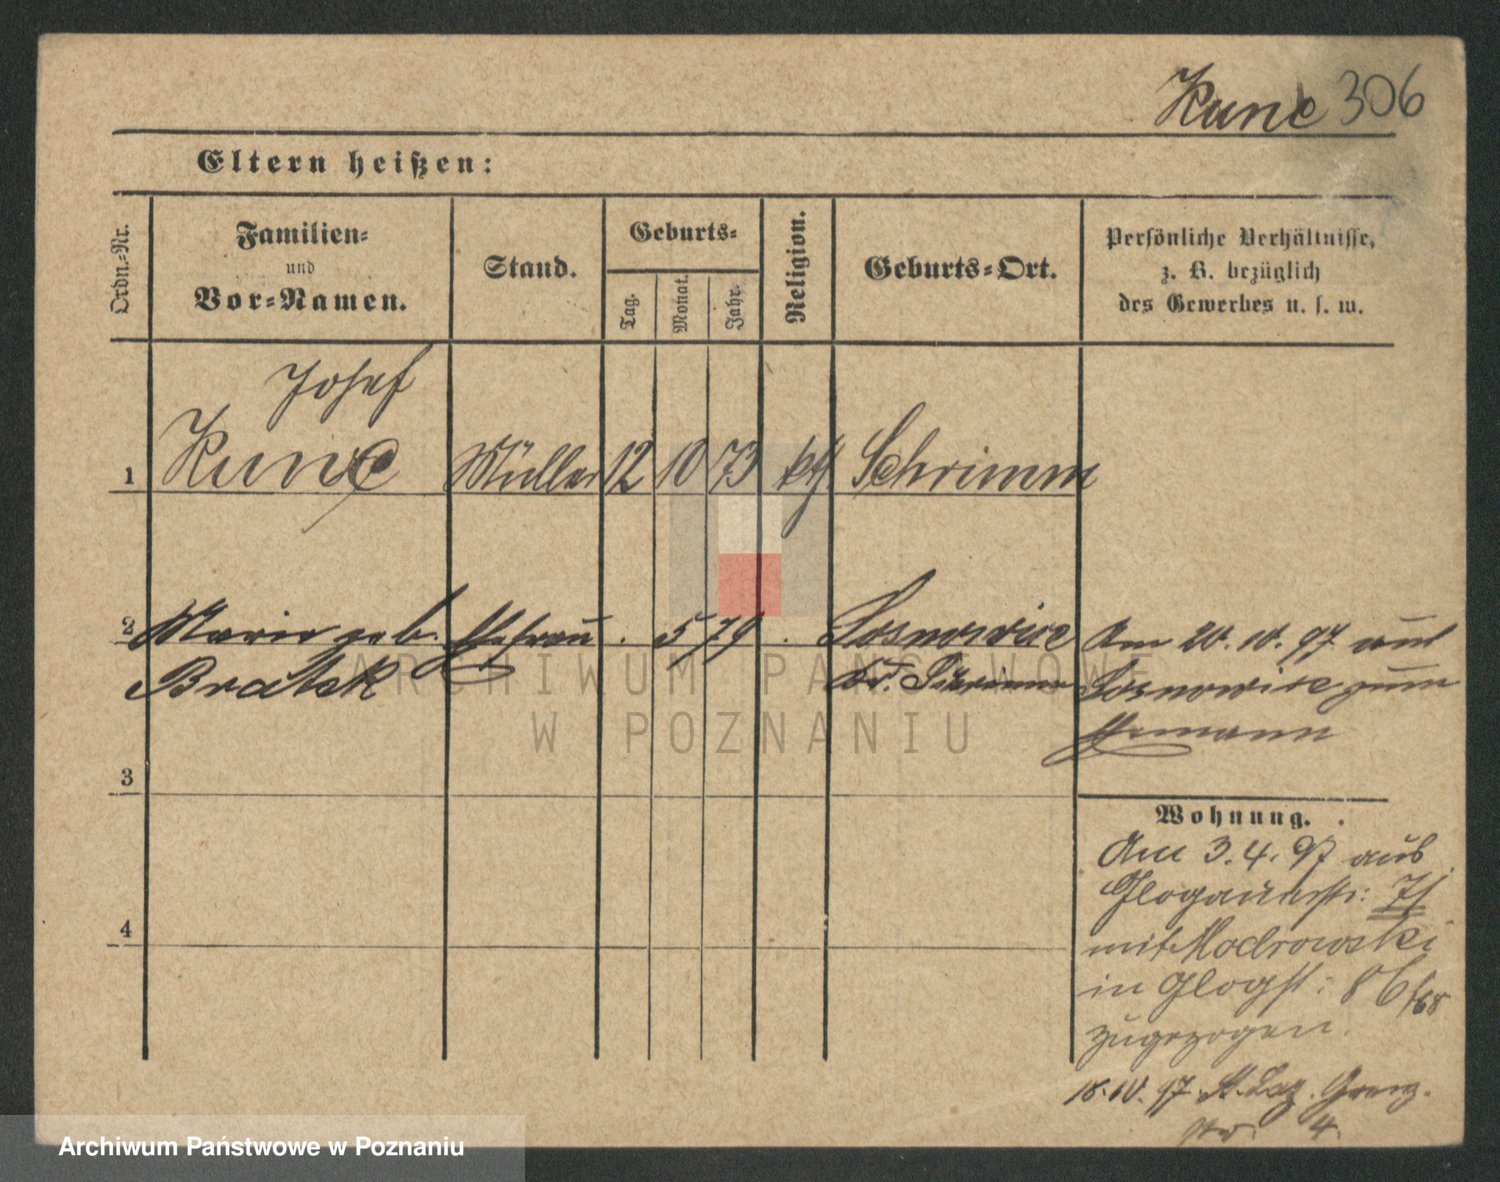 Kunc 306
Eltern heißen:
Ordn.-Nr.
Familien- und Vor-Namen.
Stand.
Geburts-
Tag.
Monat.
Jahr.
Religion.
Geburts-Ort.
Persönliche Verhältnisse,
z. B. bezüglich
des Gewerbes u. s. w.
Josef
1 Kunc Müller 12 10 73 kth. Schrimm
2 Marie geb. Ehefrau . 5 79 . Sosnowice Am 20. 10. 97 aus
Bratek Kr. Schrimm Sosnowice zum
Ehemann
3
Wohnung.
Am 3. 4. 97 aus
Glogauerstr: 71
4
mit Modrowski
in Glogst: 86/68
zugezogen.
18. 10. 97 St. Laz. Grenz-
str. 4.
ARCHIWUM PAŃSTWOWE
W POZNANIU
Archiwum Państwowe w Poznaniu